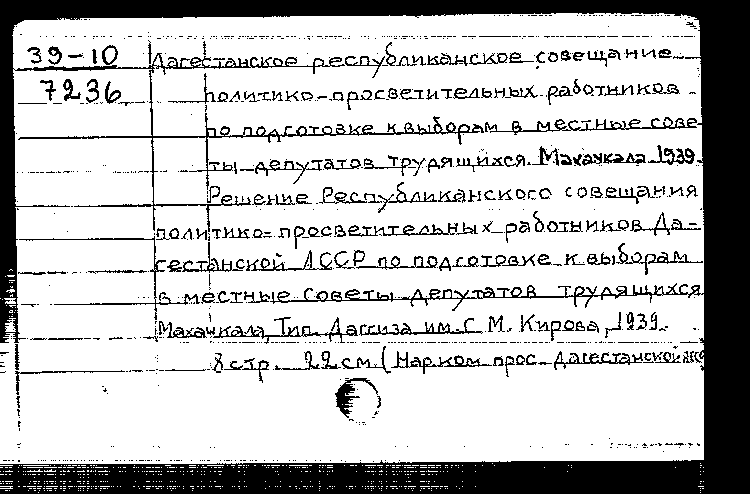 39-10
7236
Дагестанское республиканское совещание
политико-просветительных работников
по подготовке к выборам в местные сове-
ты депутатов трудящихся. Махачкала 1939.
Решение Республиканского совещания
политико-просветительных работников Да-
гестанской АССР по подготовке к выборам
в местные Советы депутатов трудящихся
Махачкала, Тип. Даггиза им. С. М. Кирова, 1939.
8 стр. 22 см. (Нарком прос. Дагестанской